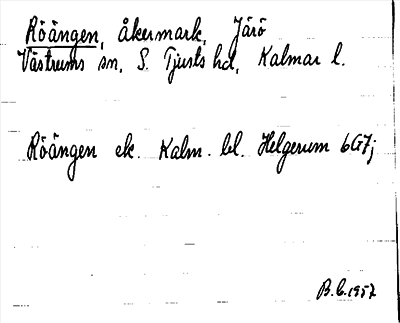 Röängen, åkermark, Järö
Västrums sn, S. Tjusts hd, Kalmar l.
Röängen ek. Kalm. bl. Helgerum 6G7j
B.C. 1957